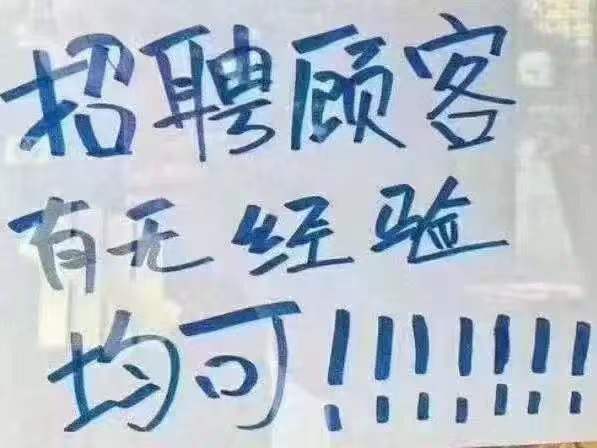 招聘顾客
有无经验
均可!!!!!!!